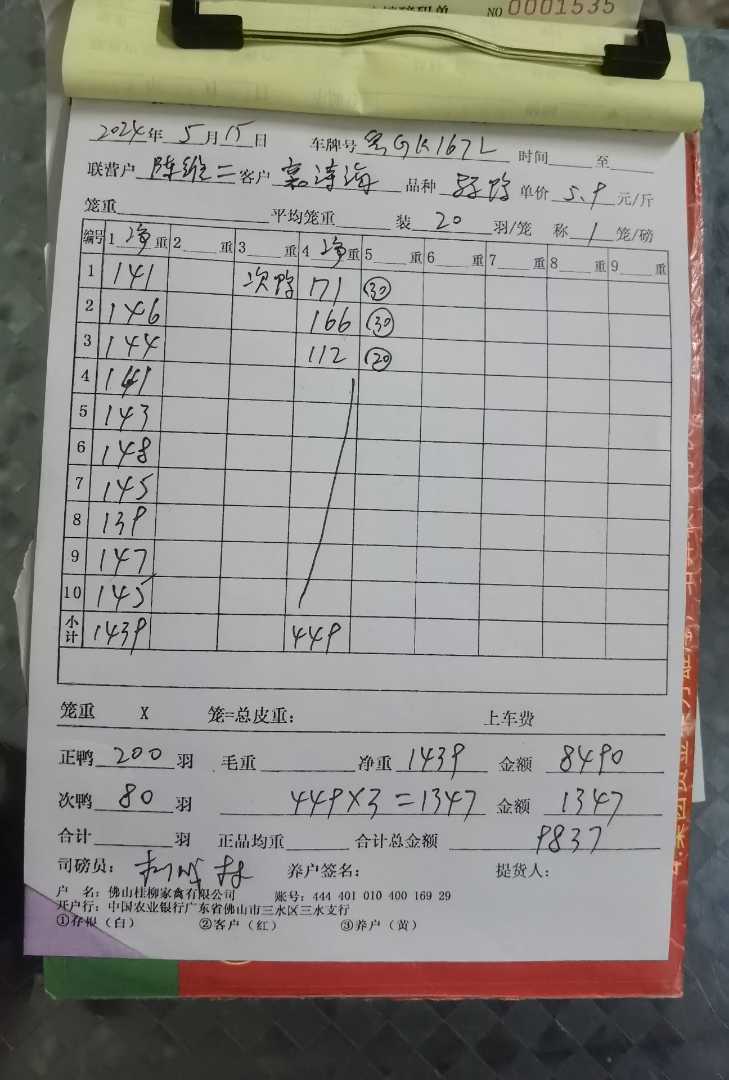 磅码单 NO 0001535
2024年 5月15日 车牌号 粤GK167L 时间 至
联营户 陈维二 客户 海 品种 单价 5.9 元/斤
笼重 平均笼重 装 20 羽/笼 称 1 笼/磅
编号 1 净重 2 重 3 重 4 净重 5 重 6 重 7 重 8 重 9 重
1 141 次鸭 171 30
2 146 166 30
3 144 112 20
4 141
5 143
6 148
7 145
8 139
9 147
10 145
小计 1439 449
笼重 X 笼=总皮重: 上车费
正鸭 200 羽 毛重 净重 1439 金额 8490
次鸭 80 羽 449×3=1347 金额 1347
合计 羽 正品均重 合计总金额 9837
司磅员: 养户签名: 提货人:
户 名: 佛山桂柳家禽有限公司 账号: 444 401 010 400 169 29
开户行: 中国农业银行广东省佛山市三水区三水支行
①存根(白) ②客户(红) ③养户(黄)